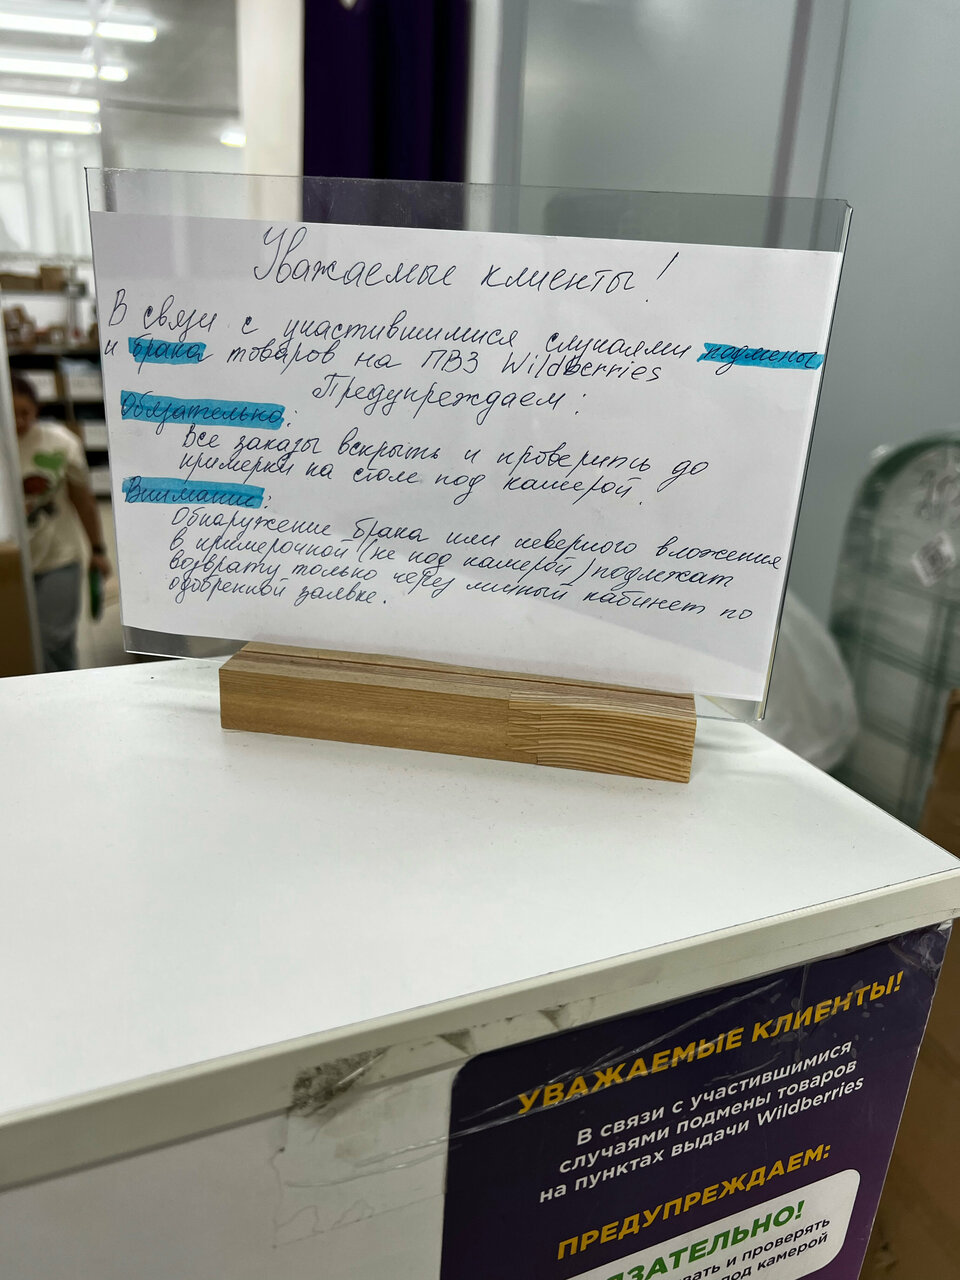 Уважаемые клиенты!
В связи с участившимися случаями подмены
и брака товаров на ПВЗ Wildberries
Предупреждаем:
Обязательно:
Все заказы вскрыть и проверить до
примерки на столе под камерой.
Внимание:
Обнаружение брака или неверного вложения
в примерочной (не под камерой) подлежат
возврату только через личный кабинет по
одобренной заявке.
УВАЖАЕМЫЕ КЛИЕНТЫ!
В связи с участившимися
случаями подмены товаров
на пунктах выдачи Wildberries
ПРЕДУПРЕЖДАЕМ:
ЗАТЕЛЬНО!
вать и проверять
под камерой